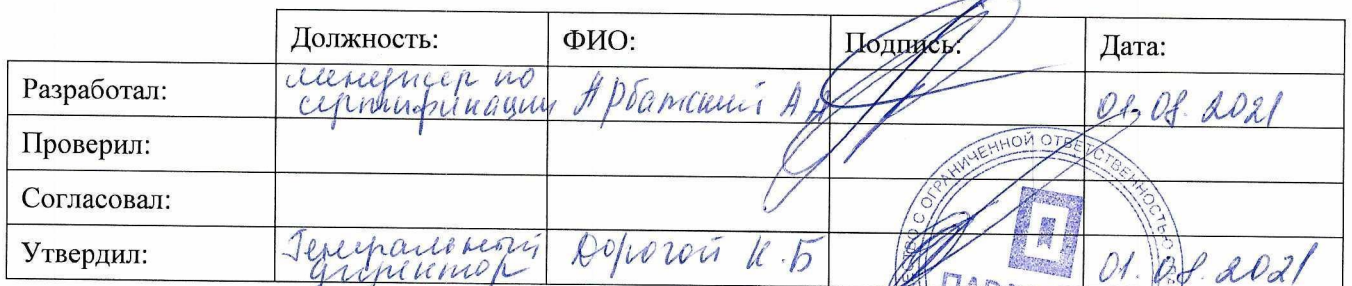 Должность: ФИО: Подпись: Дата:
Разработал: менеджер по сертификации Арбатский А А 01.08.2021
Проверил:
Согласовал:
Утвердил: Генеральный директор Дорогой К.Б 01.08.2021
СТВО С ОГРАНИЧЕННОЙ ОТВЕТСТВЕННОСТЬЮ